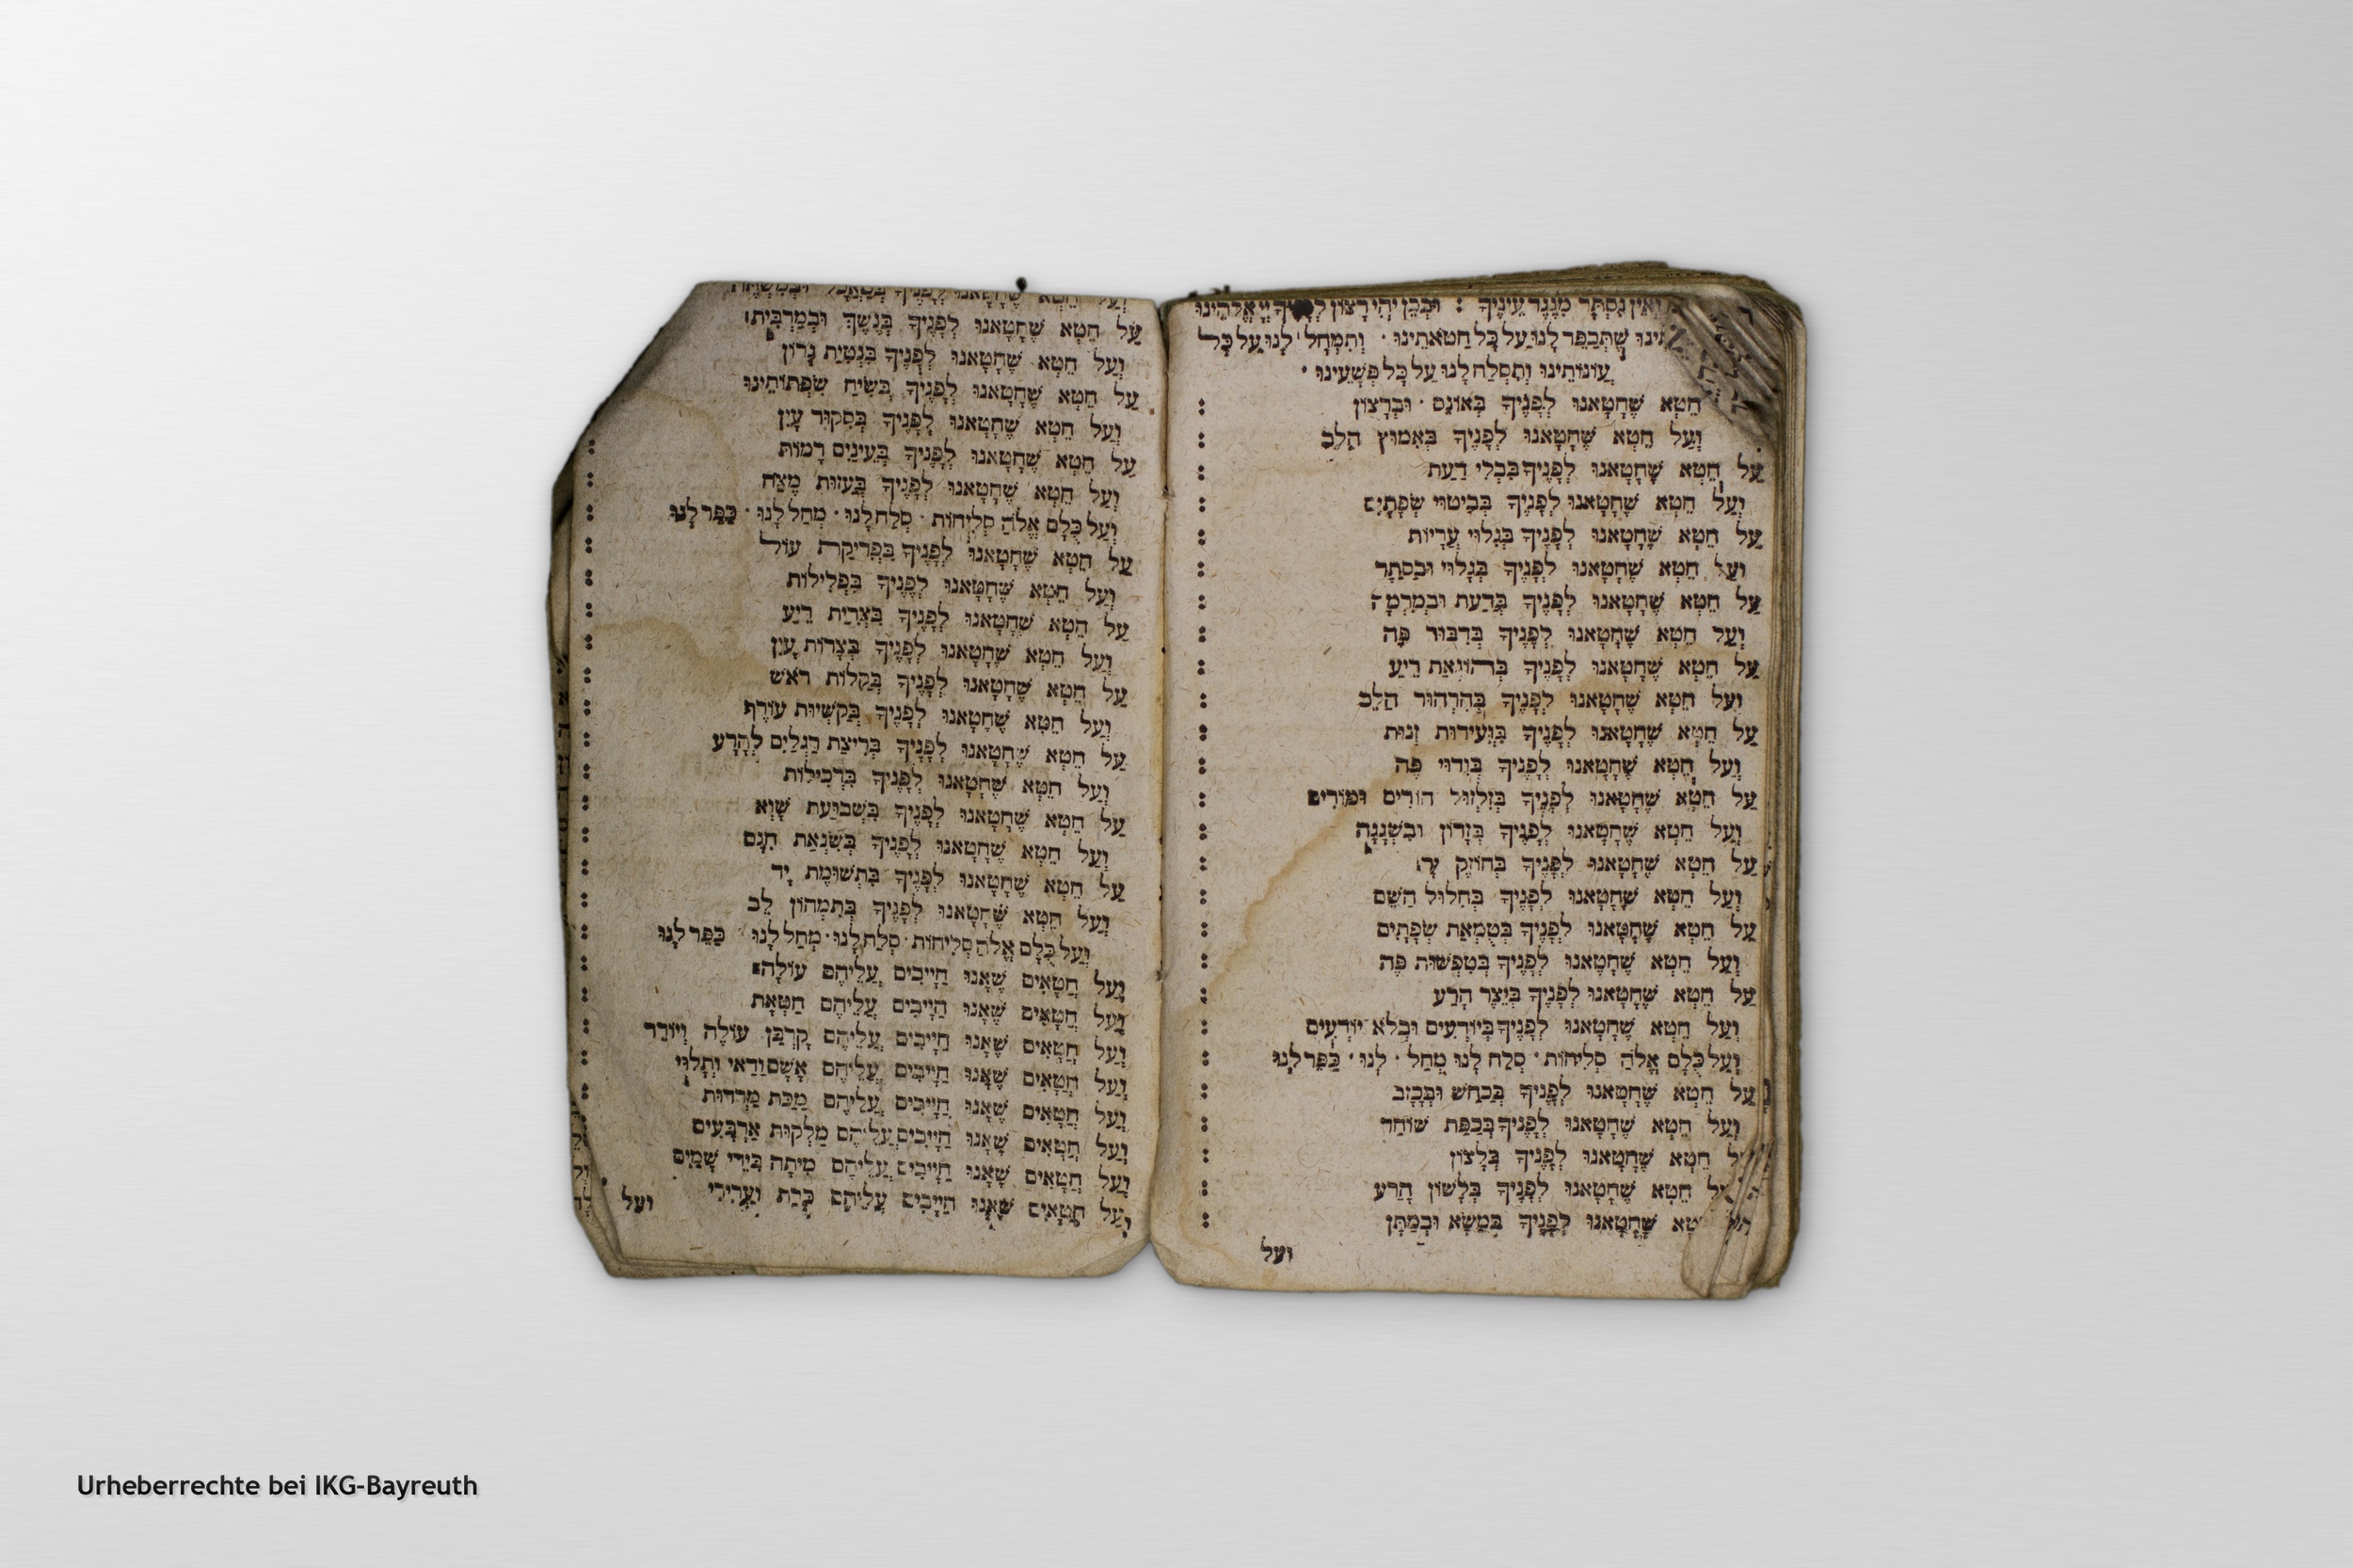 ואין נסתר מנגד עיניך : ובכן יהי רצון ייאלהינו
שתכפר לנו על כל חטאתינו · ותמחל לנו על כל
עונותינו ותסלח לנו על כל פשעינו ·
חטא שחטאנו לפניך באונס · וברצון :
ועל חטא שחטאנו לפניך באמוץ הלב :
על חטא שחטאנו לפניך בבלי דעת :
ועל חטא שחטאנו לפניך בביטוי שפתים :
על חטא שחטאנו לפניך בגלוי עריות :
ועל חטא שחטאנו לפניך בגלוי ובסתר :
על חטא שחטאנו לפניך בדעת ובמרמה :
ועל חטא שחטאנו לפניך בדבור פה :
על חטא שחטאנו לפניך בהונאת ריע :
ועל חטא שחטאנו לפניך בהרהור הלב :
על חטא שחטאנו לפניך בועידות זנות :
ועל חטא שחטאנו לפניך בוידוי פה :
על חטא שחטאנו לפניך בזלזול הורים ומורים :
ועל חטא שחטאנו לפניך בזדון ובשגגה :
על חטא שחטאנו לפניך בחוזק יד :
ועל חטא שחטאנו לפניך בחלול השם :
על חטא שחטאנו לפניך בטמאת שפתים :
ועל חטא שחטאנו לפניך בטפשות פה :
על חטא שחטאנו לפניך ביצר הרע :
ועל חטא שחטאנו לפניך ביודעים ובלא יודעים :
ועל כלם אלה סליחות · סלח לנו מחל · לנו · כפר לנו :
על חטא שחטאנו לפניך בכחש ובכזב :
ועל חטא שחטאנו לפניך בכפת שוחד :
חטא שחטאנו לפניך בלצון :
חטא שחטאנו לפניך בלשון הרע :
שחטאנו לפניך במשא ובמתן :
ועל
ועל חטא שחטאנו לפניך במאכל ובמשתה
על חטא שחטאנו לפניך בנשך ובמרבית
ועל חטא שחטאנו לפניך בנטית גרון
על חטא שחטאנו לפניך בשיח שפתותינו
ועל חטא שחטאנו לפניך בסקור עין :
על חטא שחטאנו לפניך בעינים רמות :
ועל חטא שחטאנו לפניך בעזות מצח :
ועל כלם אלה סליחות · סלח לנו · מחל לנו · כפר לנו :
על חטא שחטאנו לפניך בפריקת עול :
ועל חטא שחטאנו לפניך בפלילות :
על חטא שחטאנו לפניך בצדית ריע :
ועל חטא שחטאנו לפניך בצרות עין :
על חטא שחטאנו לפניך בקלות ראש :
ועל חטא שחטאנו לפניך בקשיות עורף :
על חטא שחטאנו לפניך בריצת רגלים להרע :
ועל חטא שחטאנו לפניך ברכילות :
על חטא שחטאנו לפניך בשבועת שוא :
ועל חטא שחטאנו לפניך בשנאת חנם :
על חטא שחטאנו לפניך בתשומת יד :
ועל חטא שחטאנו לפניך בתמהון לב :
ועל כלם אלה סליחות · סלח לנו · מחל לנו כפר לנו :
ועל חטאים שאנו חייבים עליהם עולה :
ועל חטאים שאנו חייבים עליהם חטאת :
ועל חטאים שאנו חייבים עליהם קרבן עולה ויורד :
ועל חטאים שאנו חייבים עליהם אשם ודאי ותלוי :
ועל חטאים שאנו חייבים עליהם מכת מרדות :
ועל חטאים שאנו חייבים עליהם מלקות ארבעים
ועל חטאים שאנו חייבים עליהם מיתה בידי שמים
ועל חטאים שאנו חייבים עליהם כרת וערירי
ועל
Urheberrechte bei IKG-Bayreuth